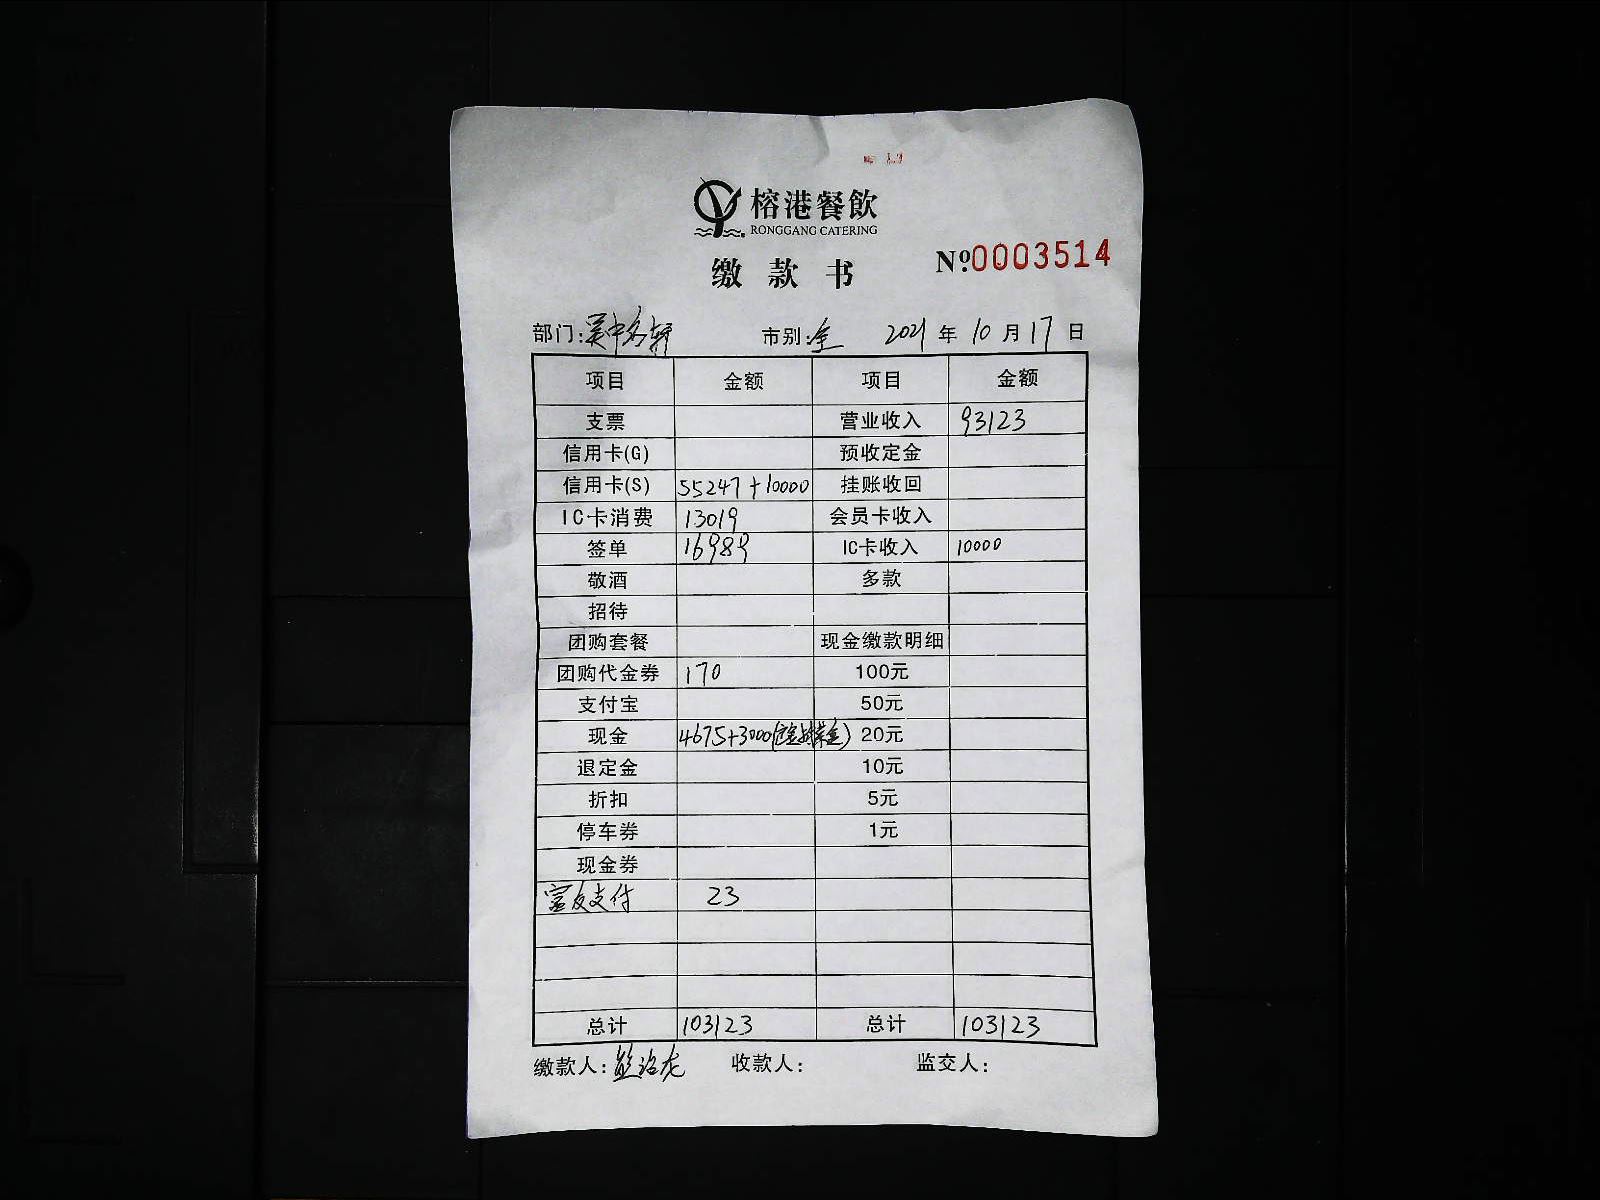 榕港餐飲
RONGGANG CATERING
缴款书 Nº0003514
部门:吴中名轩 市别:全 2021年10月17日
项目 金额 项目 金额
支票 营业收入 93123
信用卡(G) 预收定金
信用卡(S) 55247+10000 挂账收回
IC卡消费 13019 会员卡收入
签单 16989 IC卡收入 10000
敬酒 多款
招待
团购套餐 现金缴款明细
团购代金券 170 100元
支付宝 50元
现金 4675+3000 20元
退定金 10元
折扣 5元
停车券 1元
现金券
富友支付 23
总计 103123 总计 103123
缴款人: 收款人: 监交人: